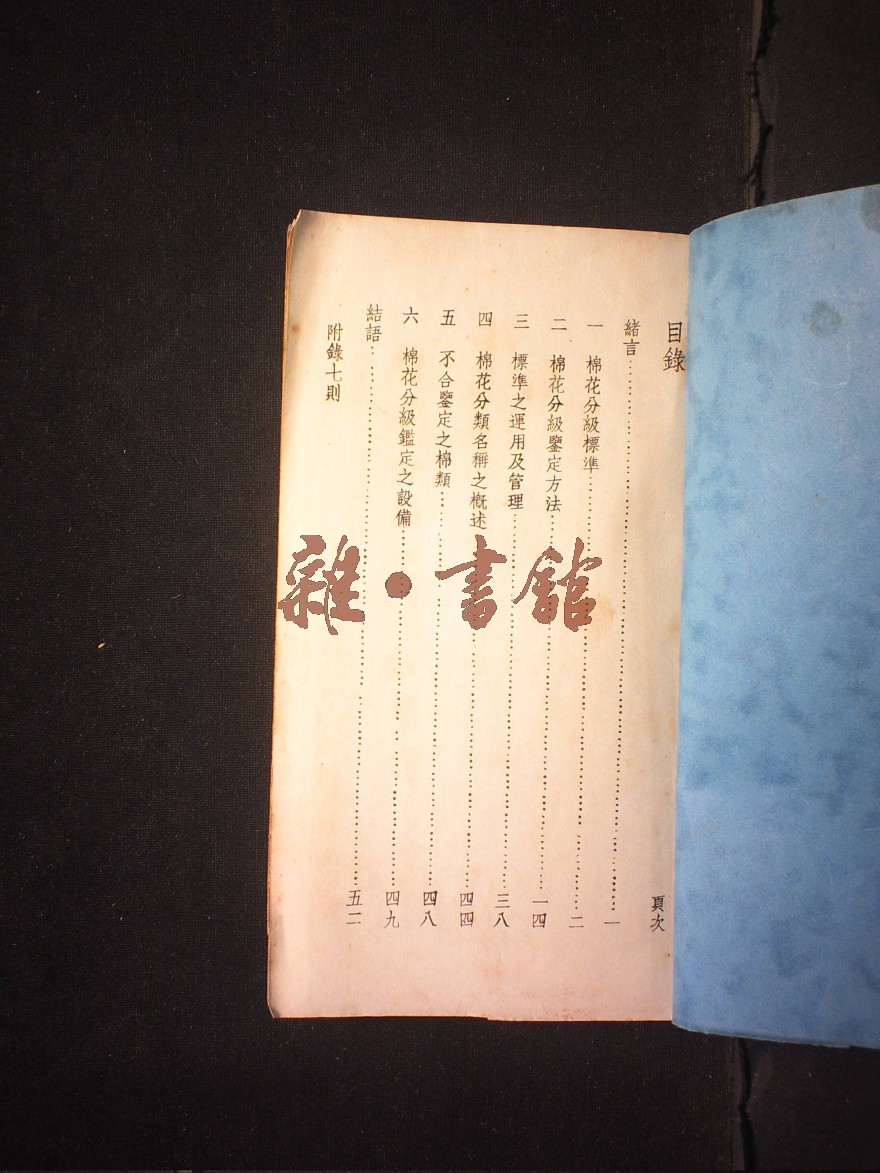 目錄 頁次
緒言 一
一 棉花分級標準 二
二 棉花分級鑒定方法 一四
三 標準之運用及管理 三八
四 棉花分類名稱之概述 四四
五 不合鑒定之棉類 四八
六 棉花分級鑑定之設備 四九
結語 五二
附錄七則
雜·書館